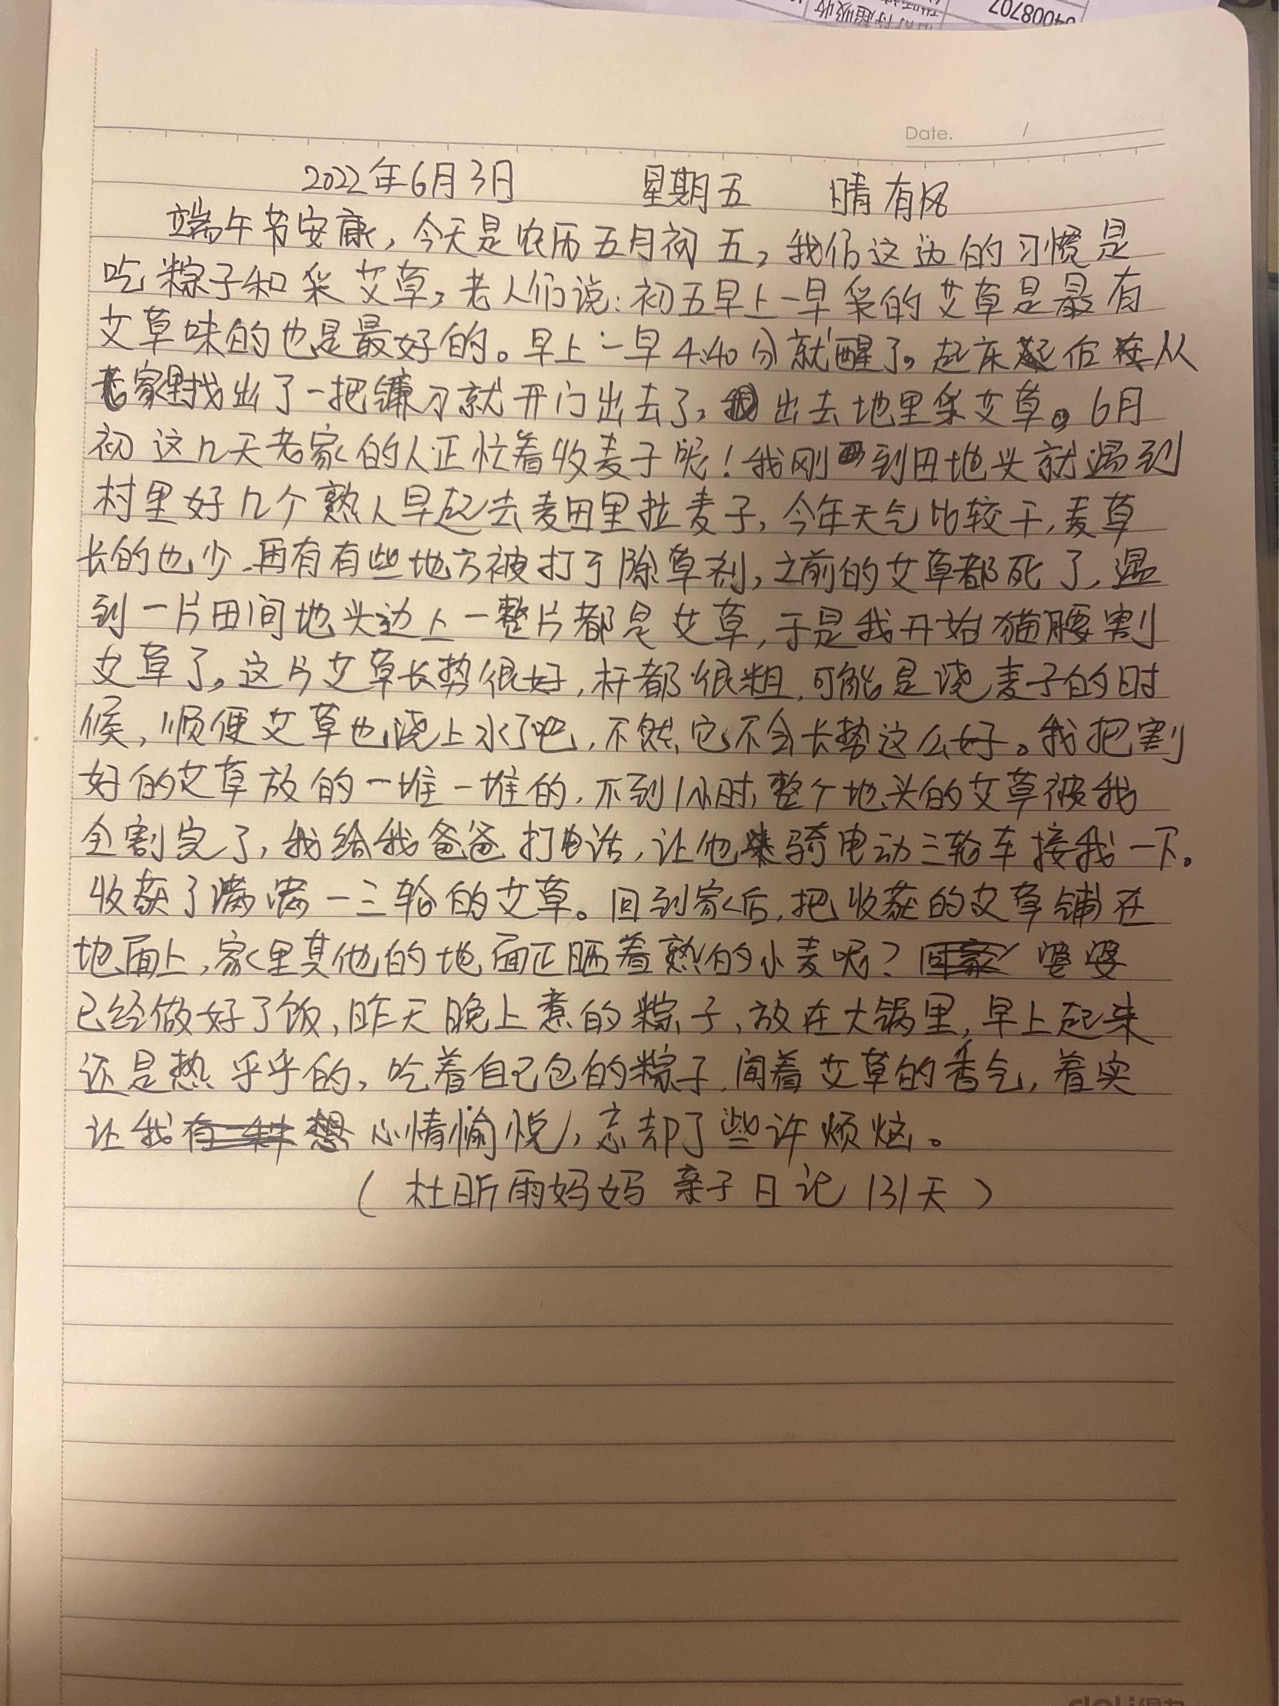 04008707
Date. /
2022年6月3日 星期五 晴有风
端午节安康,今天是农历五月初五,我们这边的习惯是
吃粽子和采艾草,老人们说:初五早上一早采的艾草是最有
艾草味的也是最好的。早上一早4:40分就醒了。起床后从
老家里找出了一把镰刀就开门出去了,出去地里采艾草。6月
初这几天老家的人正忙着收麦子呢!我刚到田地头就遇到
村里好几个熟人早起去麦田里拉麦子,今年天气比较干,麦草
长的也少,再有有些地方被打了除草剂,之前的艾草都死了,遇
到一片田间地头边上一整片都是艾草,于是我开始猫腰割
艾草了。这片艾草长势很好,杆都很粗,可能是浇麦子的时
候,顺便艾草也浇上水了吧,不然它不会长势这么好。我把割
好的艾草放的一堆一堆的,不到1小时,整个地头的艾草被我
全割完了,我给我爸爸打电话,让他来骑电动三轮车接我一下。
收获了满满一三轮的艾草。回到家后,把收获的艾草铺在
地面上,家里其他的地面正晒着熟的小麦呢?婆婆
已经做好了饭,昨天晚上煮的粽子,放在大锅里,早上起来
还是热乎乎的,吃着自己包的粽子,闻着艾草的香气,着实
让我心情愉悦,忘却了些许烦恼。
(杜昕雨妈妈 亲子日记131天)
deli得力